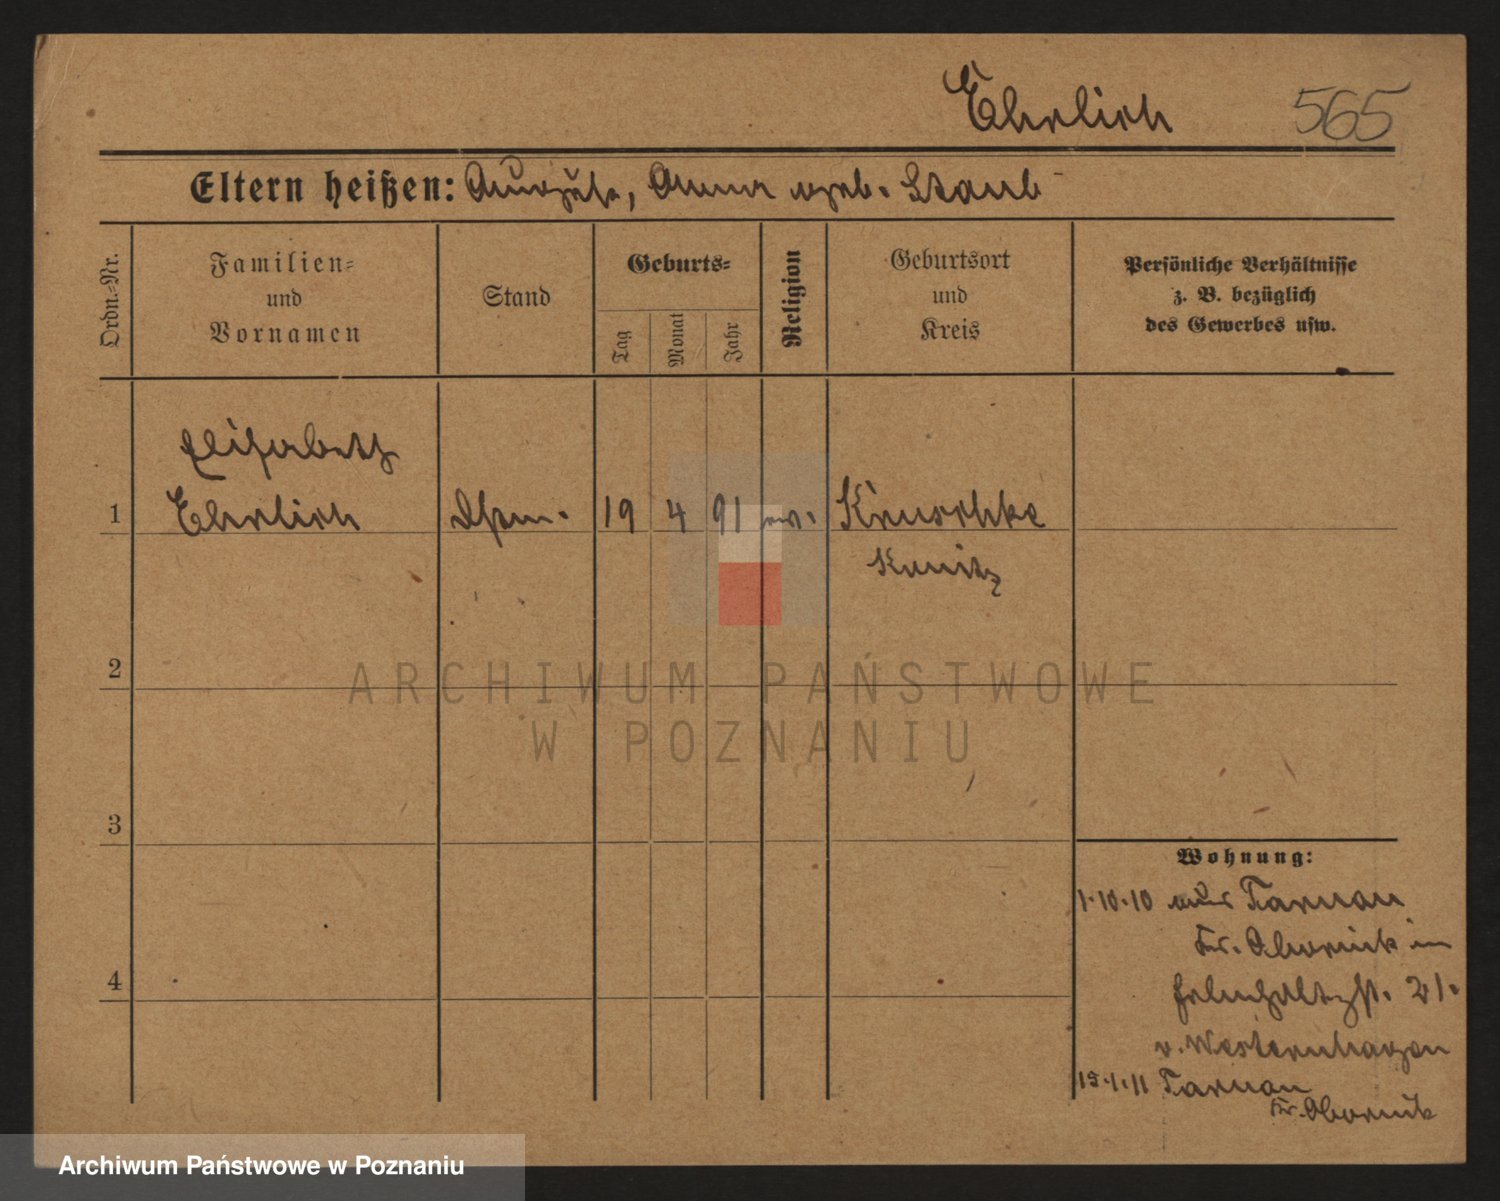 Ehrlich 565
Eltern heißen: August, Anna geb. Staub
Ordn.=Nr.
Familien=
und
Vornamen
Stand
Geburts=
Tag
Monat
Jahr
Religion
Geburtsort
und
Kreis
Persönliche Verhältnisse
z. B. bezüglich
des Gewerbes usw.
Elisabeth
1 Ehrlich 19 4 91 ev. Kruschke
2
3
4
Wohnung:
1.10.10 aus Tarnau
Kr. Obornik in
21.
v. Westernhagen
15.1.11 Tarnau
Kr. Obornik
ARCHIWUM PAŃSTWOWE
W POZNANIU
Archiwum Państwowe w Poznaniu